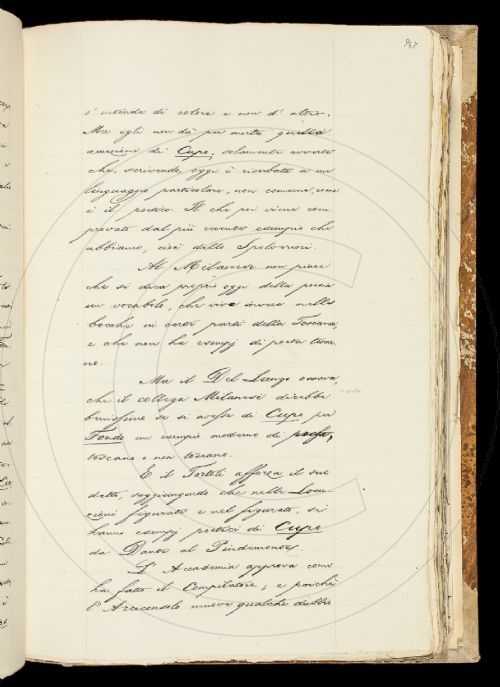 937
s'intenda di colore e non d'altro.
Ma egli non dà per morta quella
accezione di Cupo; solamente avverte
che, scrivendo, oggi è riserbata a un
linguaggio particolare, non comune, come
è il poetico. Il che poi viene com
provato dal più recente esempio che
abbiamo, cioè dallo Spolverini.
Al Milanesi non piace
che si dica proprio oggi della poesia
un vocabolo, che vive invece nelle
bocche in certe parti della Toscana,
e che non ha esempj di poeta tosca
no.
Ma il Del Lungo osserva,
che il collega Milanesi direbbe
benissimo se si avesse di Cupo per
Fondo un esempio moderno di prosa,
toscano o non toscano.
E il Tortoli afforza il suo
detto, soggiungendo che nelle Locu-
zioni figurate e nel figurato, si
hanno esempj poetici di Cupo
da Dante al Pindemonte.
L'Accademia approva come
ha fatto il Compilatore; e poichè
l'Arciconsolo muove qualche dubbio